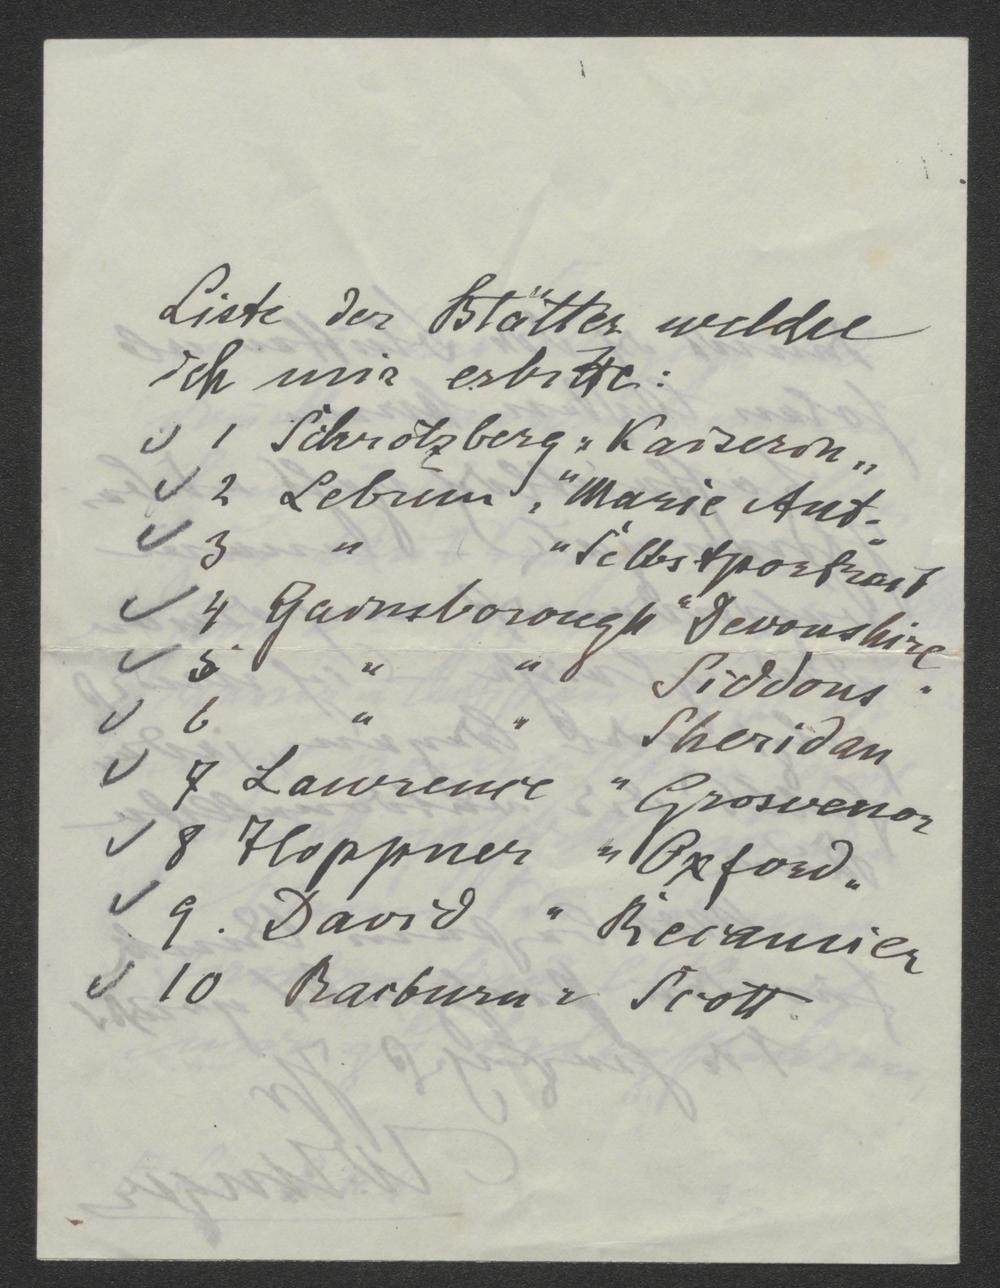 Liste der Blätter welche
ich mir erbitte:
1 Schrotzberg „Kaiserin„
2 Lebrun „"Marie Ant-"
3 " "Selbstportrait
4 Gainsborough "Devonshire
5 " " Siddons "
6 " " Sheridan
7 Lawrence " Grosvenor
8 Hoppner " Oxford„
9. David " Recamier
10 Raeburn " Scott.